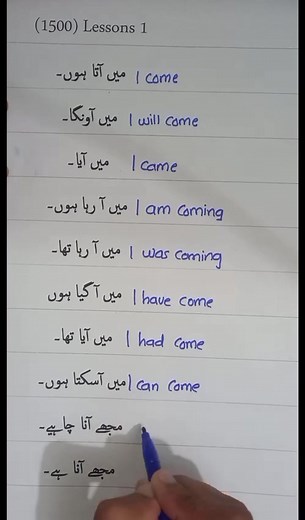 (1500) Lessons 1
میں آتا ہوں۔ I come
میں آونگا۔ I will come
میں آیا۔ I came
میں آ رہا ہوں۔ I am coming
میں آ رہا تھا۔ I was coming
میں آ گیا ہوں I have come
میں آیا تھا۔ I had come
میں آسکتا ہوں۔ I can come
مجھے آنا چاہیے۔
مجھے آنا ہے۔